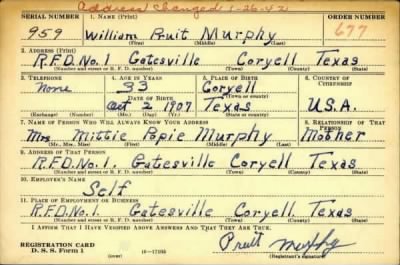 Address Changed 1-26-42
SERIAL NUMBER 1. NAME (Print) ORDER NUMBER
959 William Pruit Murphy 677
(First) (Middle) (Last)
2. ADDRESS (Print)
R.F.D. No. 1 Gatesville Coryell Texas
(Number and street or R. F. D. number) (Town) (County) (State)
3. TELEPHONE 4. AGE IN YEARS 5. PLACE OF BIRTH 6. COUNTRY OF CITIZENSHIP
None 33 Coryell
DATE OF BIRTH (Town or county)
Oct 2 1907 Texas U.S.A.
(Exchange) (Number) (Mo.) (Day) (Yr.) (State or country)
7. NAME OF PERSON WHO WILL ALWAYS KNOW YOUR ADDRESS 8. RELATIONSHIP OF THAT PERSON
Mrs Mittie Popie Murphy Mother
(Mr., Mrs., Miss) (First) (Middle) (Last)
9. ADDRESS OF THAT PERSON
R.F.D. No. 1. Gatesville Coryell Texas
(Number and street or R. F. D. number) (Town) (County) (State)
10. EMPLOYER'S NAME
Self
11. PLACE OF EMPLOYMENT OR BUSINESS
R.F.D. No. 1. Gatesville Coryell Texas
(Number and street or R. F. D. number) (Town) (County) (State)
I AFFIRM THAT I HAVE VERIFIED ABOVE ANSWERS AND THAT THEY ARE TRUE.
Pruit Murphy
REGISTRATION CARD
D. S. S. Form 1 (over) (Registrant's signature)